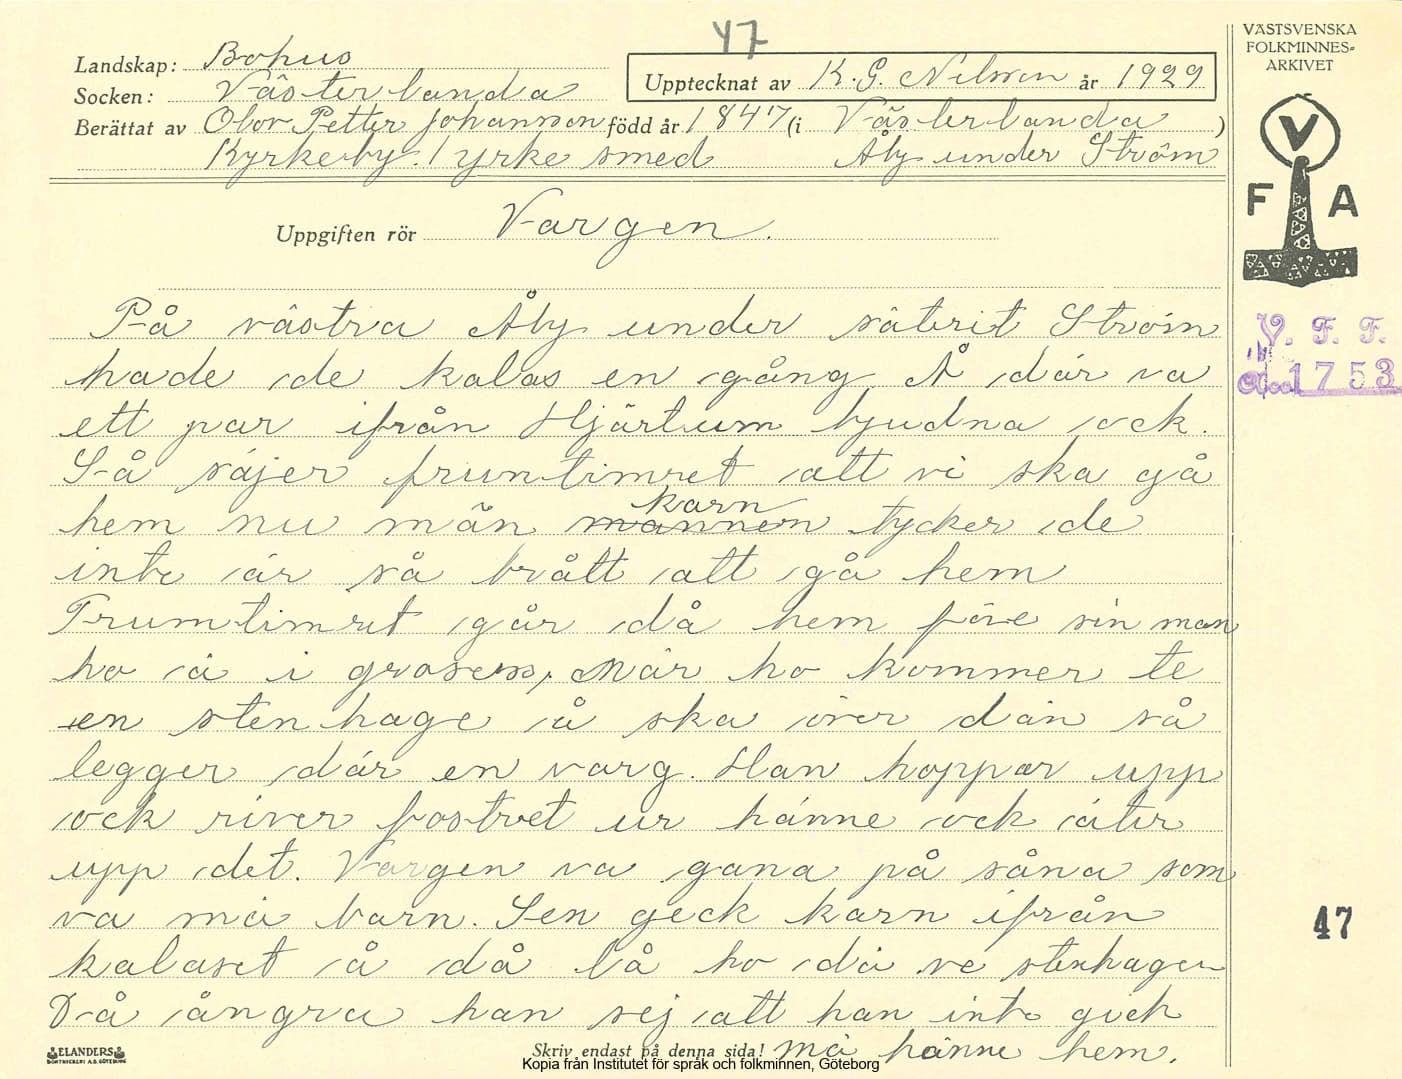 47
Landskap: Bohus
Socken: Västerlanda
Upptecknat av K. G. Nilsson år 1929
Berättat av Olov Petter Johansson född år 1847 (i Västerlanda )
Kyrkeby. / yrke smed Åby under Ström
Uppgiften rör Vargen.
På västra Åby under säterit Ström
hade de kalas en gång, Å där va
ett par ifrån Hjärtum bjudna ock.
Så säjer fruntimret att vi ska gå
hem nu män mannen karn tycker de
inte är så brått att gå hem
Frumtimret går då hem före sin man
ho ä i grosess, När ho kommer te
en stenhage å ska över dän så
legger där en varg. Han hoppar upp
ock river fostret ur hänne ock äter
upp det. Vargen va gana på såna som
va mä barn. Sen geck karn ifrån
kalaset å då lå ho dä ve stenhagen
Då ångra han sej att han inte gick
mä hänne hem.
Skriv endast på denna sida!
ELANDERS
BOKTRYCKERI A.B. GÖTEBORG
Kopia från Institutet för språk och folkminnen, Göteborg
VÄSTSVENSKA
FOLKMINNES-
ARKIVET
V
F A
V. F. F.
1753
47